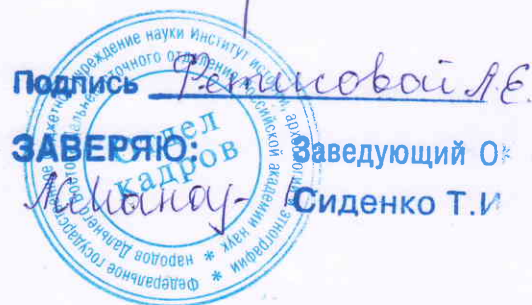 Подпись Фетисовой Л.Е.
ЗАВЕРЯЮ: Заведующий О
Сиденко Т.И
Отдел
кадров
Федеральное государственное бюджетное учреждение науки Институт истории, археологии и этнографии
народов Дальнего Востока Дальневосточного отделения Российской академии наук